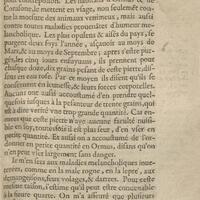 Corassone, le mettent en visage, non seulement contre
la morsure des animaux venimeux, mais aussi
contre toutes maladies procedées d'humeur melancholique.
Les plus opulens & aisés du pays, se
purgent deux foys l'année, asçauoir au moys de
Mars, & au moys de Septembre: apres s'estre purgés,
les cinq iours ensuyuans, ils prennent pour
chasque doze, dix grains pesant de ceste pierre, dissous
en eau rose. Par ce moyen ils disent qu'ils se
conseruent en ieunesse, & leurs forces corporelles.
Aucuns ont aussi accoustumé d'en prendre quelquefois
iusques à la pesanteur de trente grains, qui
est à vray dire vne trop grande quantité. Car encores
que ceste pierre n'aye aucune faculté nuisible
en soy, toutesfois il est plus seur, d'en vser en
petite quantité. Et aussi on a accoustumé de l'ordonner
en petite quantité en Ormus, disans qu'on
n'en peut vser largement sans danger.
Ie m'en sers aux maladies melancholiques inueterées,
comme en la male rogne, en la lepre, aux
demangeaisons, feux volages, & dartres. Pour ceste
mesme raison, i'estime qu'il peut estre conuenable
à la fieure quarte. On m'a asseuré que plusieurs